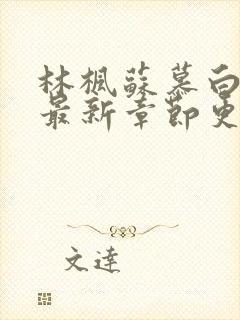 林楓蘇慕白
最新章節更
文達